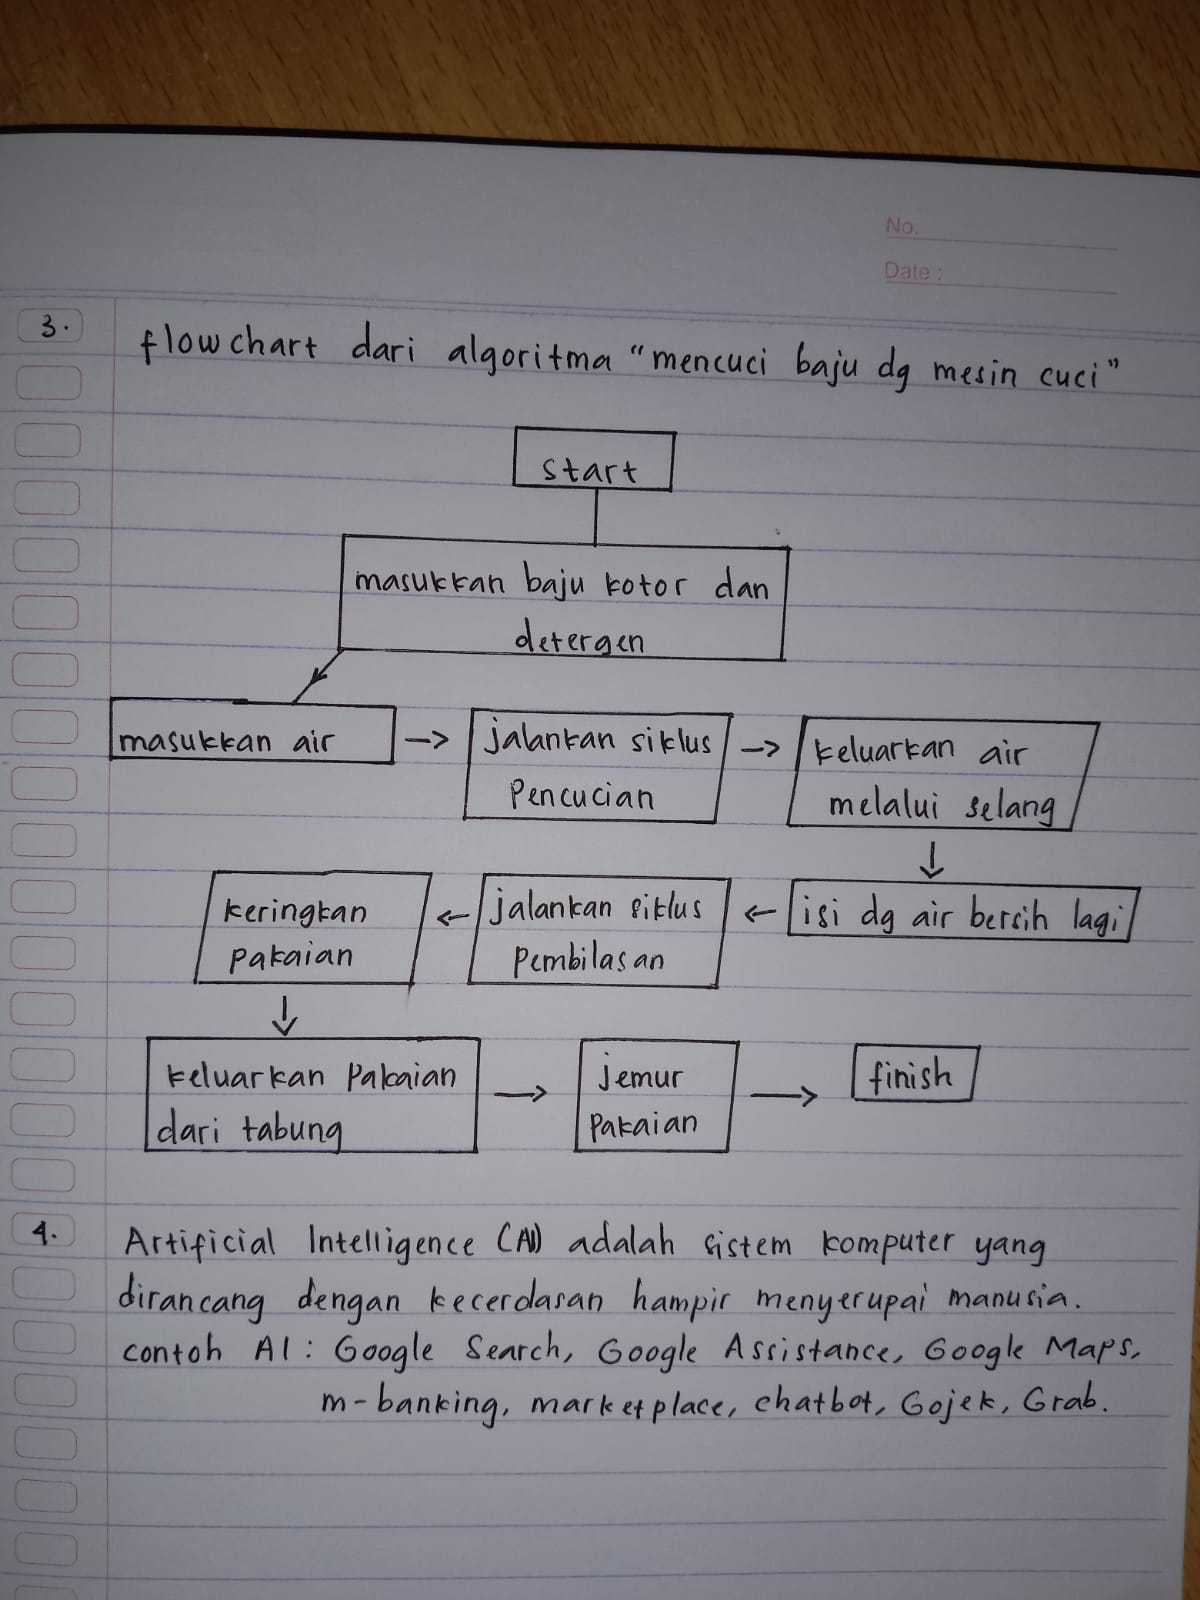 No.
Date :
3. flowchart dari algoritma "mencuci baju dg mesin cuci"
start
masukkan baju kotor dan
detergen
masukkan air
jalankan siklus
Pencucian
keluarkan air
melalui selang
isi dg air bersih lagi
jalankan siklus
pembilasan
keringkan
pakaian
keluarkan pakaian
dari tabung
jemur
pakaian
finish
4. Artificial Intelligence (AI) adalah sistem komputer yang
dirancang dengan kecerdasan hampir menyerupai manusia.
contoh AI : Google Search, Google Assistance, Google Maps,
m-banking, marketplace, chatbot, Gojek, Grab.